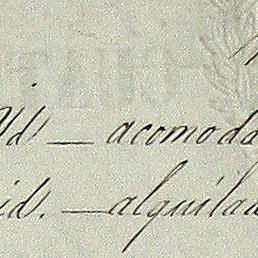 Id — acomoda
id. — alquilad